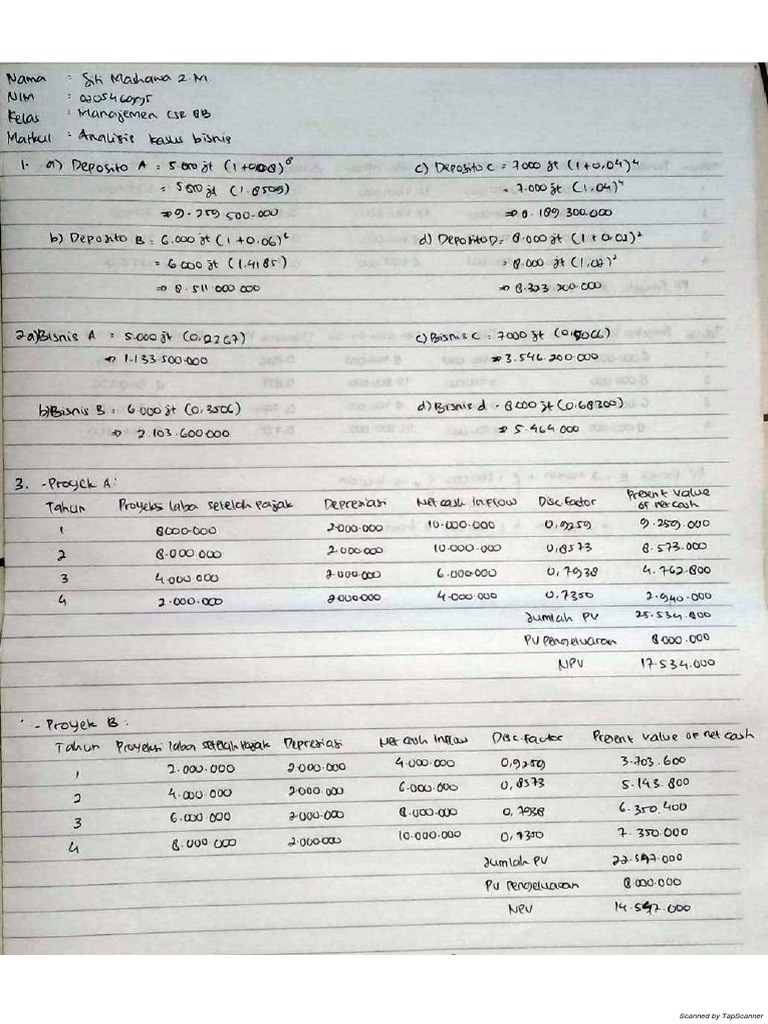 Nama : Siti Mashana Z.M
NIM :
Kelas : Manajemen CSR BB
Matkul : Analisis kasus bisnis
1. a) Deposito A = 5.000 jt (1+0,08)⁸
= 5.000 jt (1.8509)
⇒ 9.259.500.000
c) Deposito C = 7000 jt (1+0,04)⁴
= 7.000 jt (1,04)⁴
⇒ 8.189.300.000
b) Deposito B = 6.000 jt (1+0.06)⁶
= 6.000 jt (1.4185)
⇒ 8.511.000.000
d) Deposito D = 8.000 jt (1+0.02)²
= 8.000 jt (1,02)²
⇒ 8.323.200.000
2a) Bisnis A = 5.000 jt (0,2267)
⇒ 1.133.500.000
c) Bisnis C = 7000 jt (0,5066)
⇒ 3.546.200.000
b) Bisnis B = 6.000 jt (0,3506)
⇒ 2.103.600.000
d) Bisnis d = 8000 jt (0,68300)
⇒ 5.464.000
3. - Proyek A:
Tahun Proyeksi laba setelah pajak Depresiasi Net cash Inflow Disc Factor Present Value of net cash
1 8000.000 2.000.000 10.000.000 0,9259 9.259.000
2 8.000.000 2.000.000 10.000.000 0,8573 8.573.000
3 4.000.000 2.000.000 6.000.000 0,7938 4.762.800
4 2.000.000 2000.000 4.000.000 0,7350 2.940.000
Jumlah PV 25.534.800
PV Pengeluaran 8.000.000
NPV 17.534.000
- Proyek B:
Tahun Proyeksi laba setelah pajak Depresiasi Net cash Inflow Disc. Factor Present Value of net cash
1 2.000.000 2.000.000 4.000.000 0,9259 3.703.600
2 4.000.000 2.000.000 6.000.000 0,8573 5.143.800
3 6.000.000 2.000.000 8.000.000 0,7938 6.350.400
4 8.000.000 2.000.000 10.000.000 0,7350 7.350.000
Jumlah PV 22.547.000
PV Pengeluaran 8.000.000
NPV 14.547.000
Scanned by TapScanner